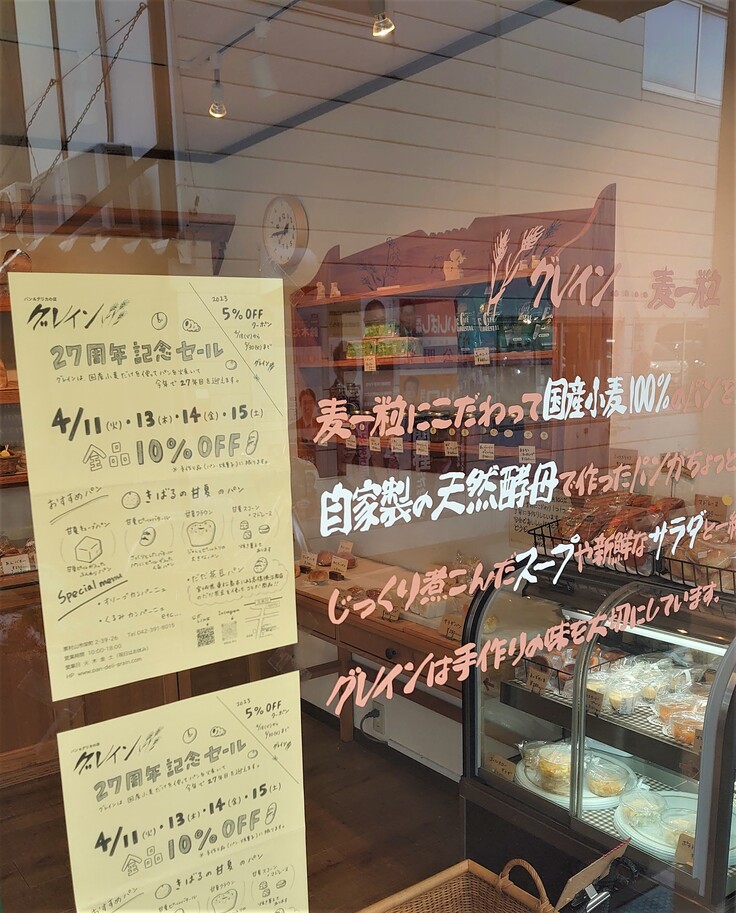 グレイン……麦一粒
麦一粒にこだわって国産小麦100%のパンと
自家製の天然酵母で作ったパンがちょっと
じっくり煮こんだスープや新鮮なサラダと一緒
グレインは手作りの味を大切にしています。
パン&デリカの店
グレイン
2023
5% OFF
クーポン
27周年記念セール
グレインは、国産小麦だけを使ってパンを焼いて
今年で27年目を迎えます。
4/11(火)・13(木)・14(金)・15(土)
全品10% OFF
おすすめパン
きばるの甘夏のパン
Special menu
・オリーブカンパーニュ
・くるみカンパーニュ
etc...
・だだ茶豆パン
Line
Instagram
東村山市栄町 2-39-26
Tel 042-391-9015
営業時間 10:00-18:00
パン&デリカの店
グレイン
2023
5% OFF
クーポン
27周年記念セール
グレインは、国産小麦だけを使ってパンを焼いて
今年で27年目を迎えます。
4/11(火)・13(木)・14(金)・15(土)
全品10% OFF
おすすめパン
きばるの甘夏のパン